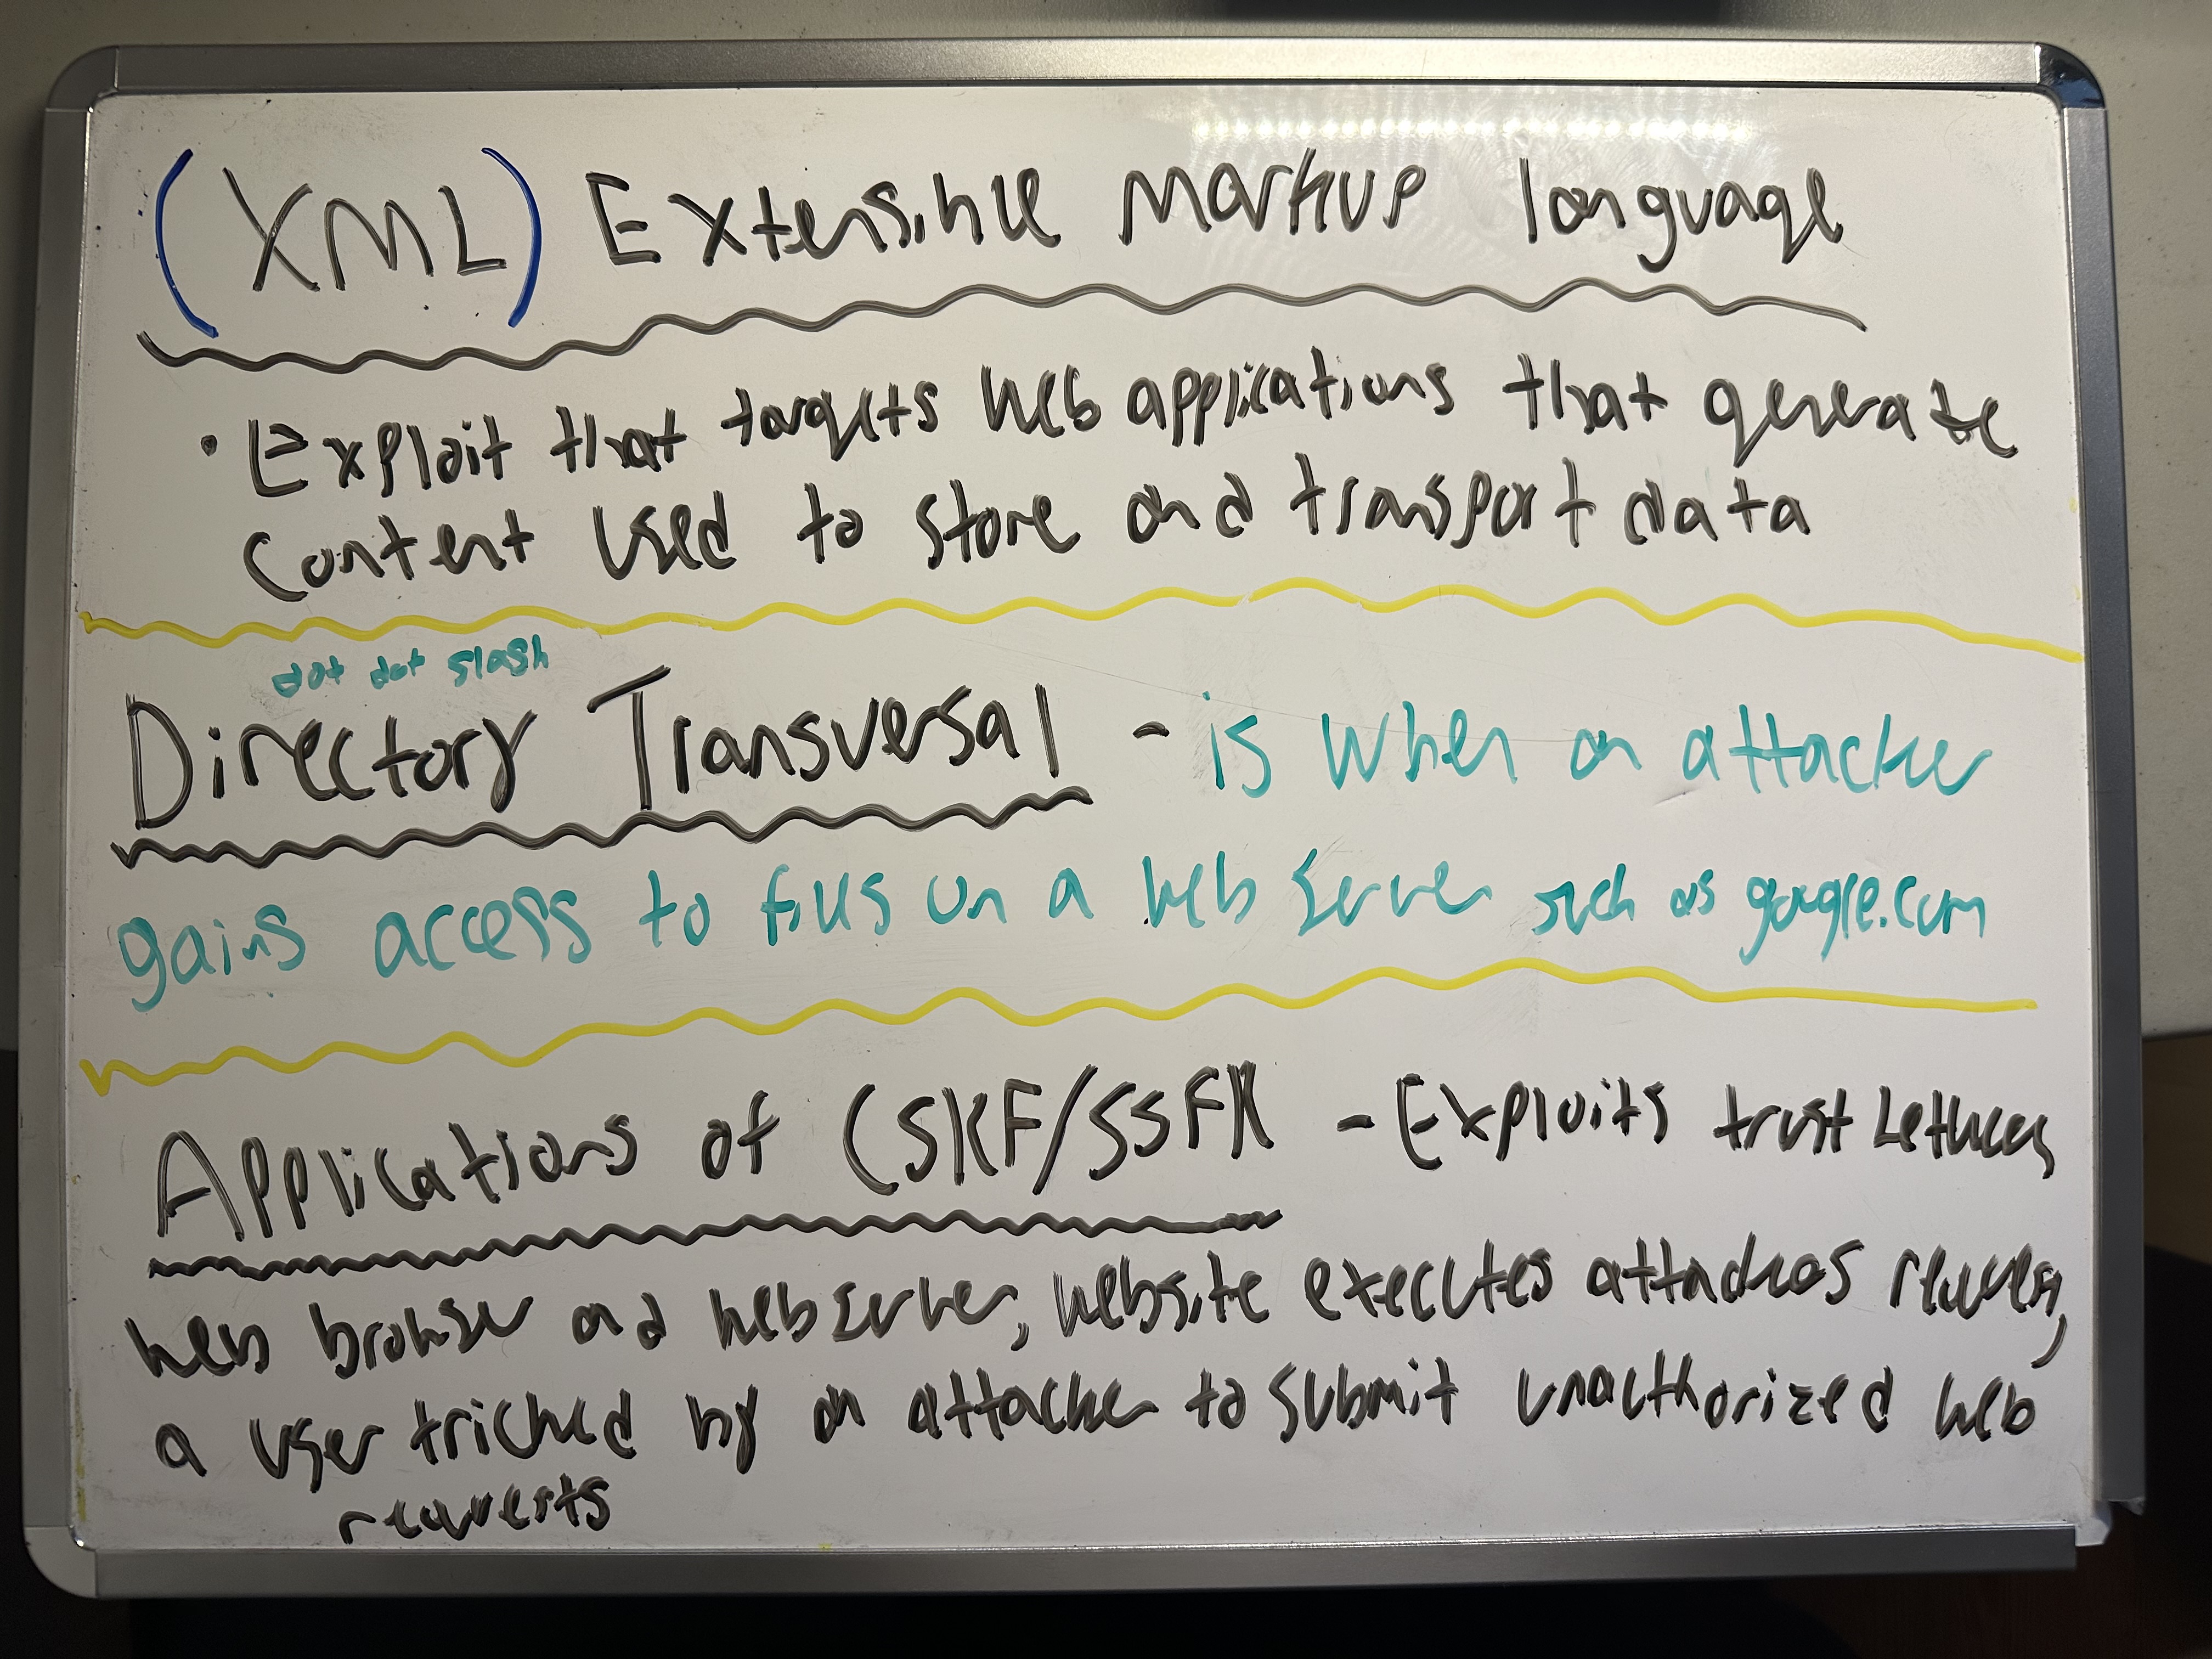 (XML) Extensible Markup language
• Exploit that targets web applications that generate
Content used to store and transport data
dot dot slash
Directory Transversal - is when an attacker
gains access to files on a web server such as google.com
Applications of CSRF/SSFR - Exploits trust between
web browser and web server, website executes attackers request,
a user tricked by an attacker to submit unauthorized web
requests